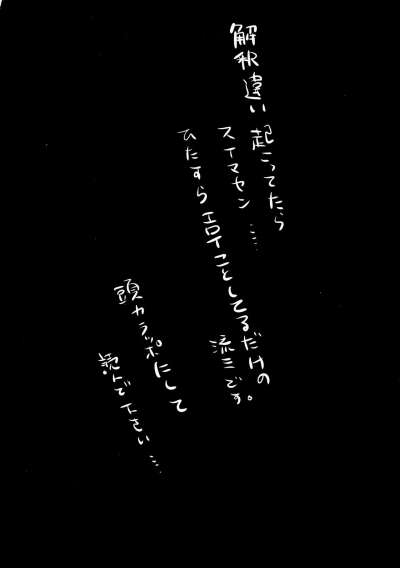 解釈違い起こってたら
スイマセン…
ひたすらエロイことしてるだけの
流三です。
頭カラッポにして
読んで下さい…